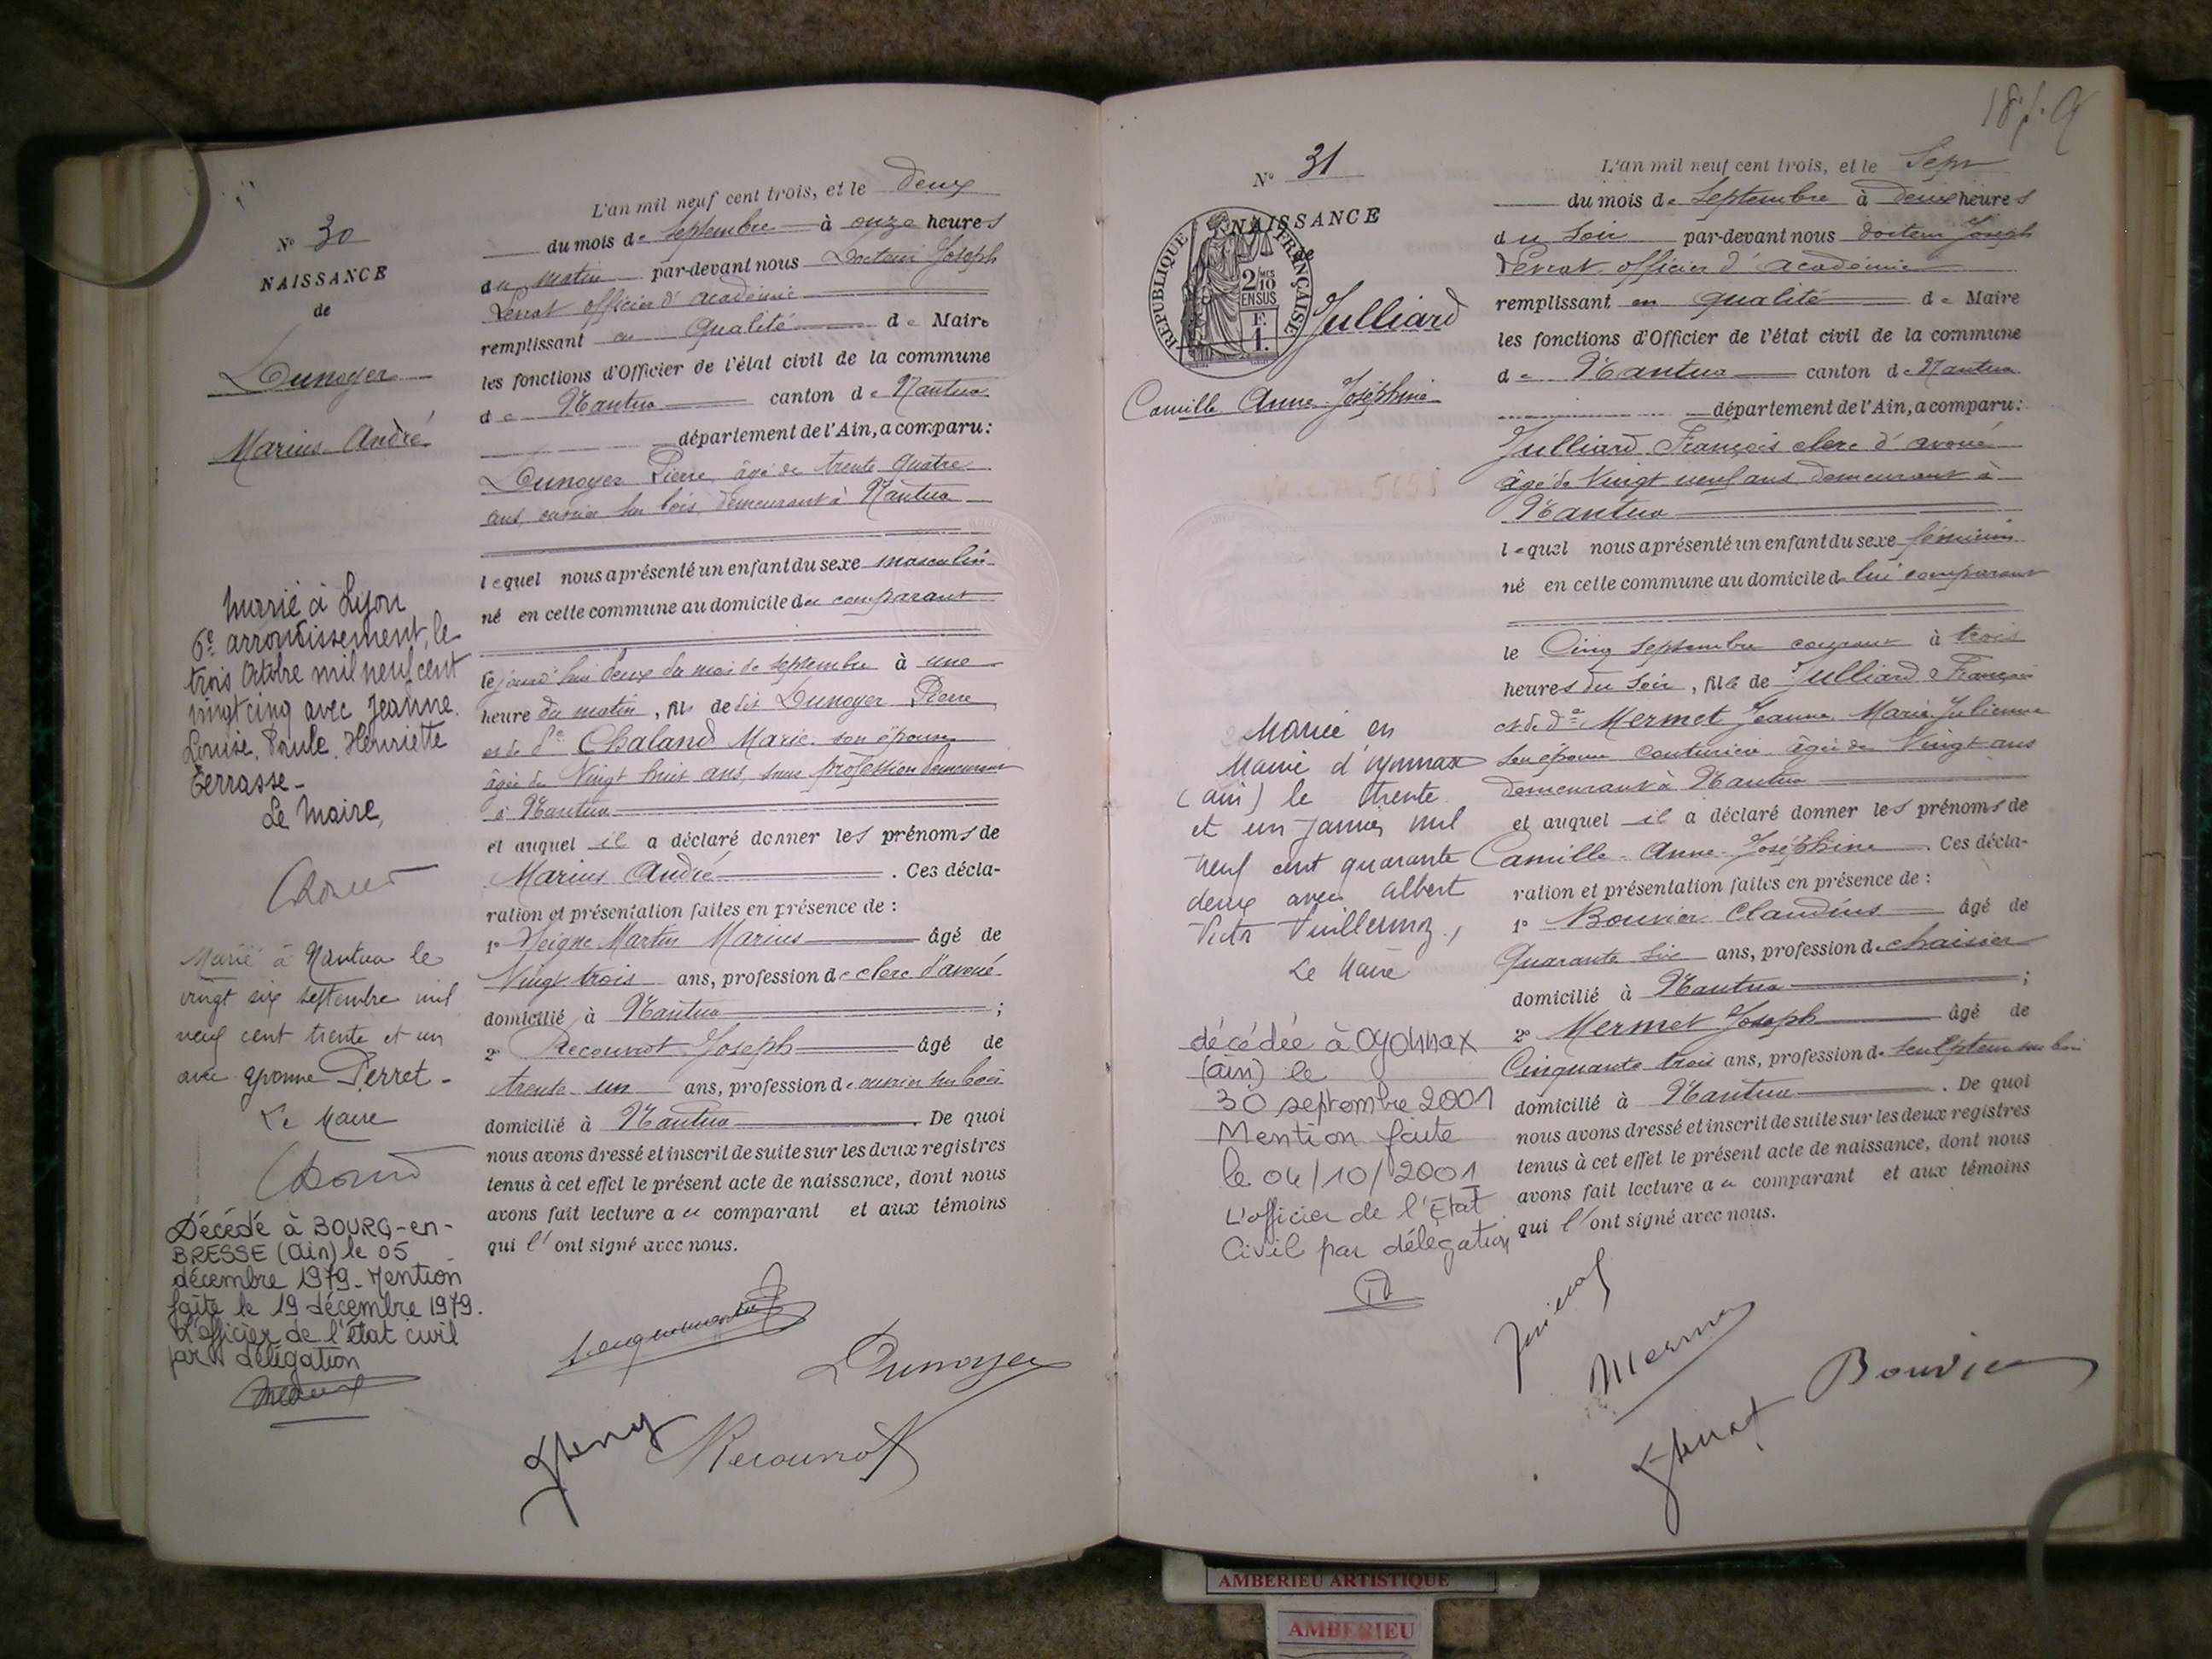 Nº 30
NAISSANCE
de
Dunoyer
Marius André
marié à Lyon
6e arrondissement, le
trois octobre mil neuf cent
vingt cinq avec Jeanne
Louise, Paule, Henriette
Terrasse.
Le Maire,
Marié à Nantua le
vingt six septembre mil
neuf cent trente et un
avec Yvonne Perret.
Le Maire
Décédé à BOURG-en-
BRESSE (Ain) le 05
décembre 1979. Mention
faite le 19 décembre 1979.
L'officier de l'état civil
par délégation
L'an mil neuf cent trois, et le deux
du mois de septembre à onze heures
du matin par-devant nous Docteur Joseph
officier d'académie
remplissant en qualité de Maire
les fonctions d'Officier de l'état civil de la commune
de Nantua canton de Nantua
département de l'Ain, a comparu:
Dunoyer Pierre, âgé de trente quatre
ans, ouvrier sur bois, demeurant à Nantua
lequel nous a présenté un enfant du sexe masculin
né en cette commune au domicile du comparant
le jourd'hui deux du mois de septembre à une
heure du matin, fils de dit Dunoyer Pierre
et de de Chaland Marie son épouse
âgée de Vingt huit ans, sans profession demeurant
à Nantua
et auquel il a déclaré donner les prénoms de
Marius André. Ces décla-
ration et présentation faites en présence de :
1º Martin Marius âgé de
Vingt trois ans, profession de clerc d'avoué
domicilié à Nantua ;
2º Recourrot Joseph âgé de
trente un ans, profession de ouvrier sur bois
domicilié à Nantua. De quoi
nous avons dressé et inscrit de suite sur les deux registres
tenus à cet effet le présent acte de naissance, dont nous
avons fait lecture au comparant et aux témoins
qui l'ont signé avec nous.
Dunoyer
Recourrot
Nº 31
NAISSANCE
de
RÉPUBLIQUE FRANÇAISE
2/10 MES
EN SUS
F.
1.
Julliard
Camille Anne Joséphine
Mariée en
Mairie d'Oyonnax
(Ain) le trente
et un janvier mil
neuf cent quarante
deux avec Albert
Victor Vuillermoz.,
Le Maire
décédée à Oyonnax
(Ain) le
30 septembre 2001
Mention faite
le 04/10/2001
L'officier de l'Etat
Civil par délégation
L'an mil neuf cent trois, et le Sept
du mois de Septembre à deux heures
du Soir par-devant nous docteur Joseph
officier d'académie
remplissant en qualité de Maire
les fonctions d'Officier de l'état civil de la commune
de Nantua canton de Nantua
département de l'Ain, a comparu:
Julliard François clerc d'avoué
âgé de Vingt neuf ans demeurant à
Nantua
lequel nous a présenté un enfant du sexe féminin
né en cette commune au domicile de lui comparant
le Cinq septembre courant à trois
heures du Soir, fille de Julliard François
et de de Mermet Jeanne Marie Julienne
son épouse couturière âgée de Vingt ans
demeurant à Nantua
et auquel il a déclaré donner les prénoms de
Camille Anne Joséphine. Ces décla-
ration et présentation faites en présence de :
1º Bouvier Claudius âgé de
Quarante six ans, profession de chaisier
domicilié à Nantua ;
2º Mermet Joseph âgé de
Cinquante trois ans, profession de sculpteur sur bois
domicilié à Nantua. De quoi
nous avons dressé et inscrit de suite sur les deux registres
tenus à cet effet le présent acte de naissance, dont nous
avons fait lecture au comparant et aux témoins
qui l'ont signé avec nous.
Bouvier
AMBERIEU ARTISTIQUE
AMBERIEU